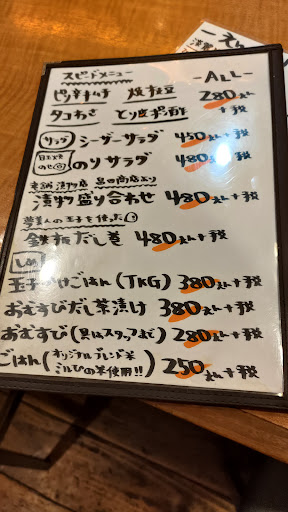 スピードメニュー -ALL-
ピリ辛キムチ 枝豆 280えん+税
タコわさ とり皮ポン酢
サラダ シーザーサラダ 450えん+税
のりサラダ 480えん+税
老舗 漬物店 より
漬物盛り合わせ 480えん+税
夢美人の玉子を使った
鉄板だし巻 480えん+税
〆
玉子かけごはん(TKG) 380えん+税
おむすびだし茶漬け 380えん+税
おむすび(具はスタッフまで) 280えん+税
ごはん(オリジナルブレンド米 ミルひの米使用!!) 250えん+税